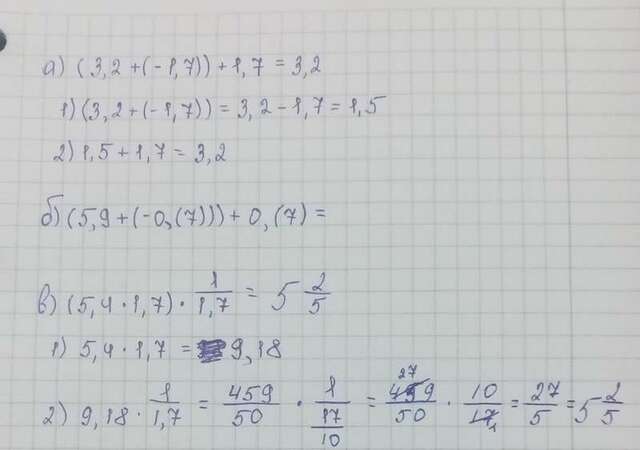 а) (3,2 + (-1,7)) + 1,7 = 3,2
1) (3,2 + (-1,7)) = 3,2 - 1,7 = 1,5
2) 1,5 + 1,7 = 3,2
б) (5,9 + (-0,(7))) + 0,(7) =
в) (5,4 · 1,7) · 1/1,7 = 5 2/5
1) 5,4 · 1,7 = 9,18
2) 9,18 · 1/1,7 = 459/50 · 1/(17/10) = 459 27/50 · 10/17 1 = 27/5 = 5 2/5